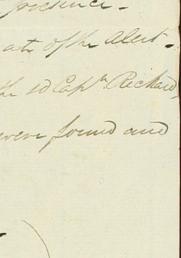 presence.
ate of the Alert.
the sd Captn. Richard
were found and